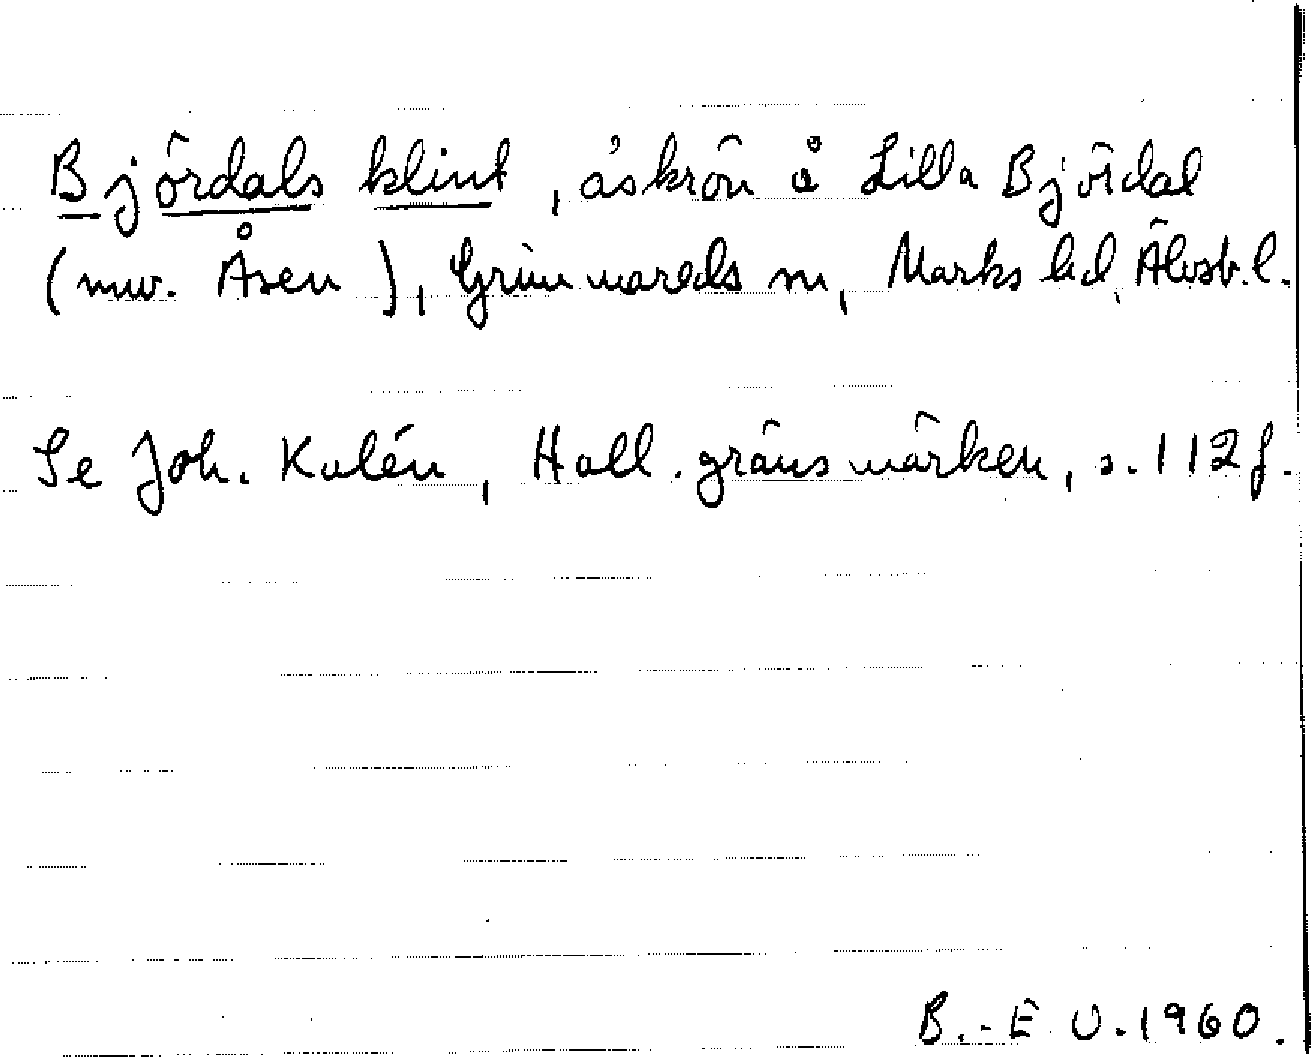 Björdals klint, åskrön å Lilla Björdal
(nuv. Åsen), Grimmareds sn, Marks hd, Älvsb. l.
Se Joh. Kalén, Hall. gränsmärken, s. 112 f.
B.-E O. 1960.